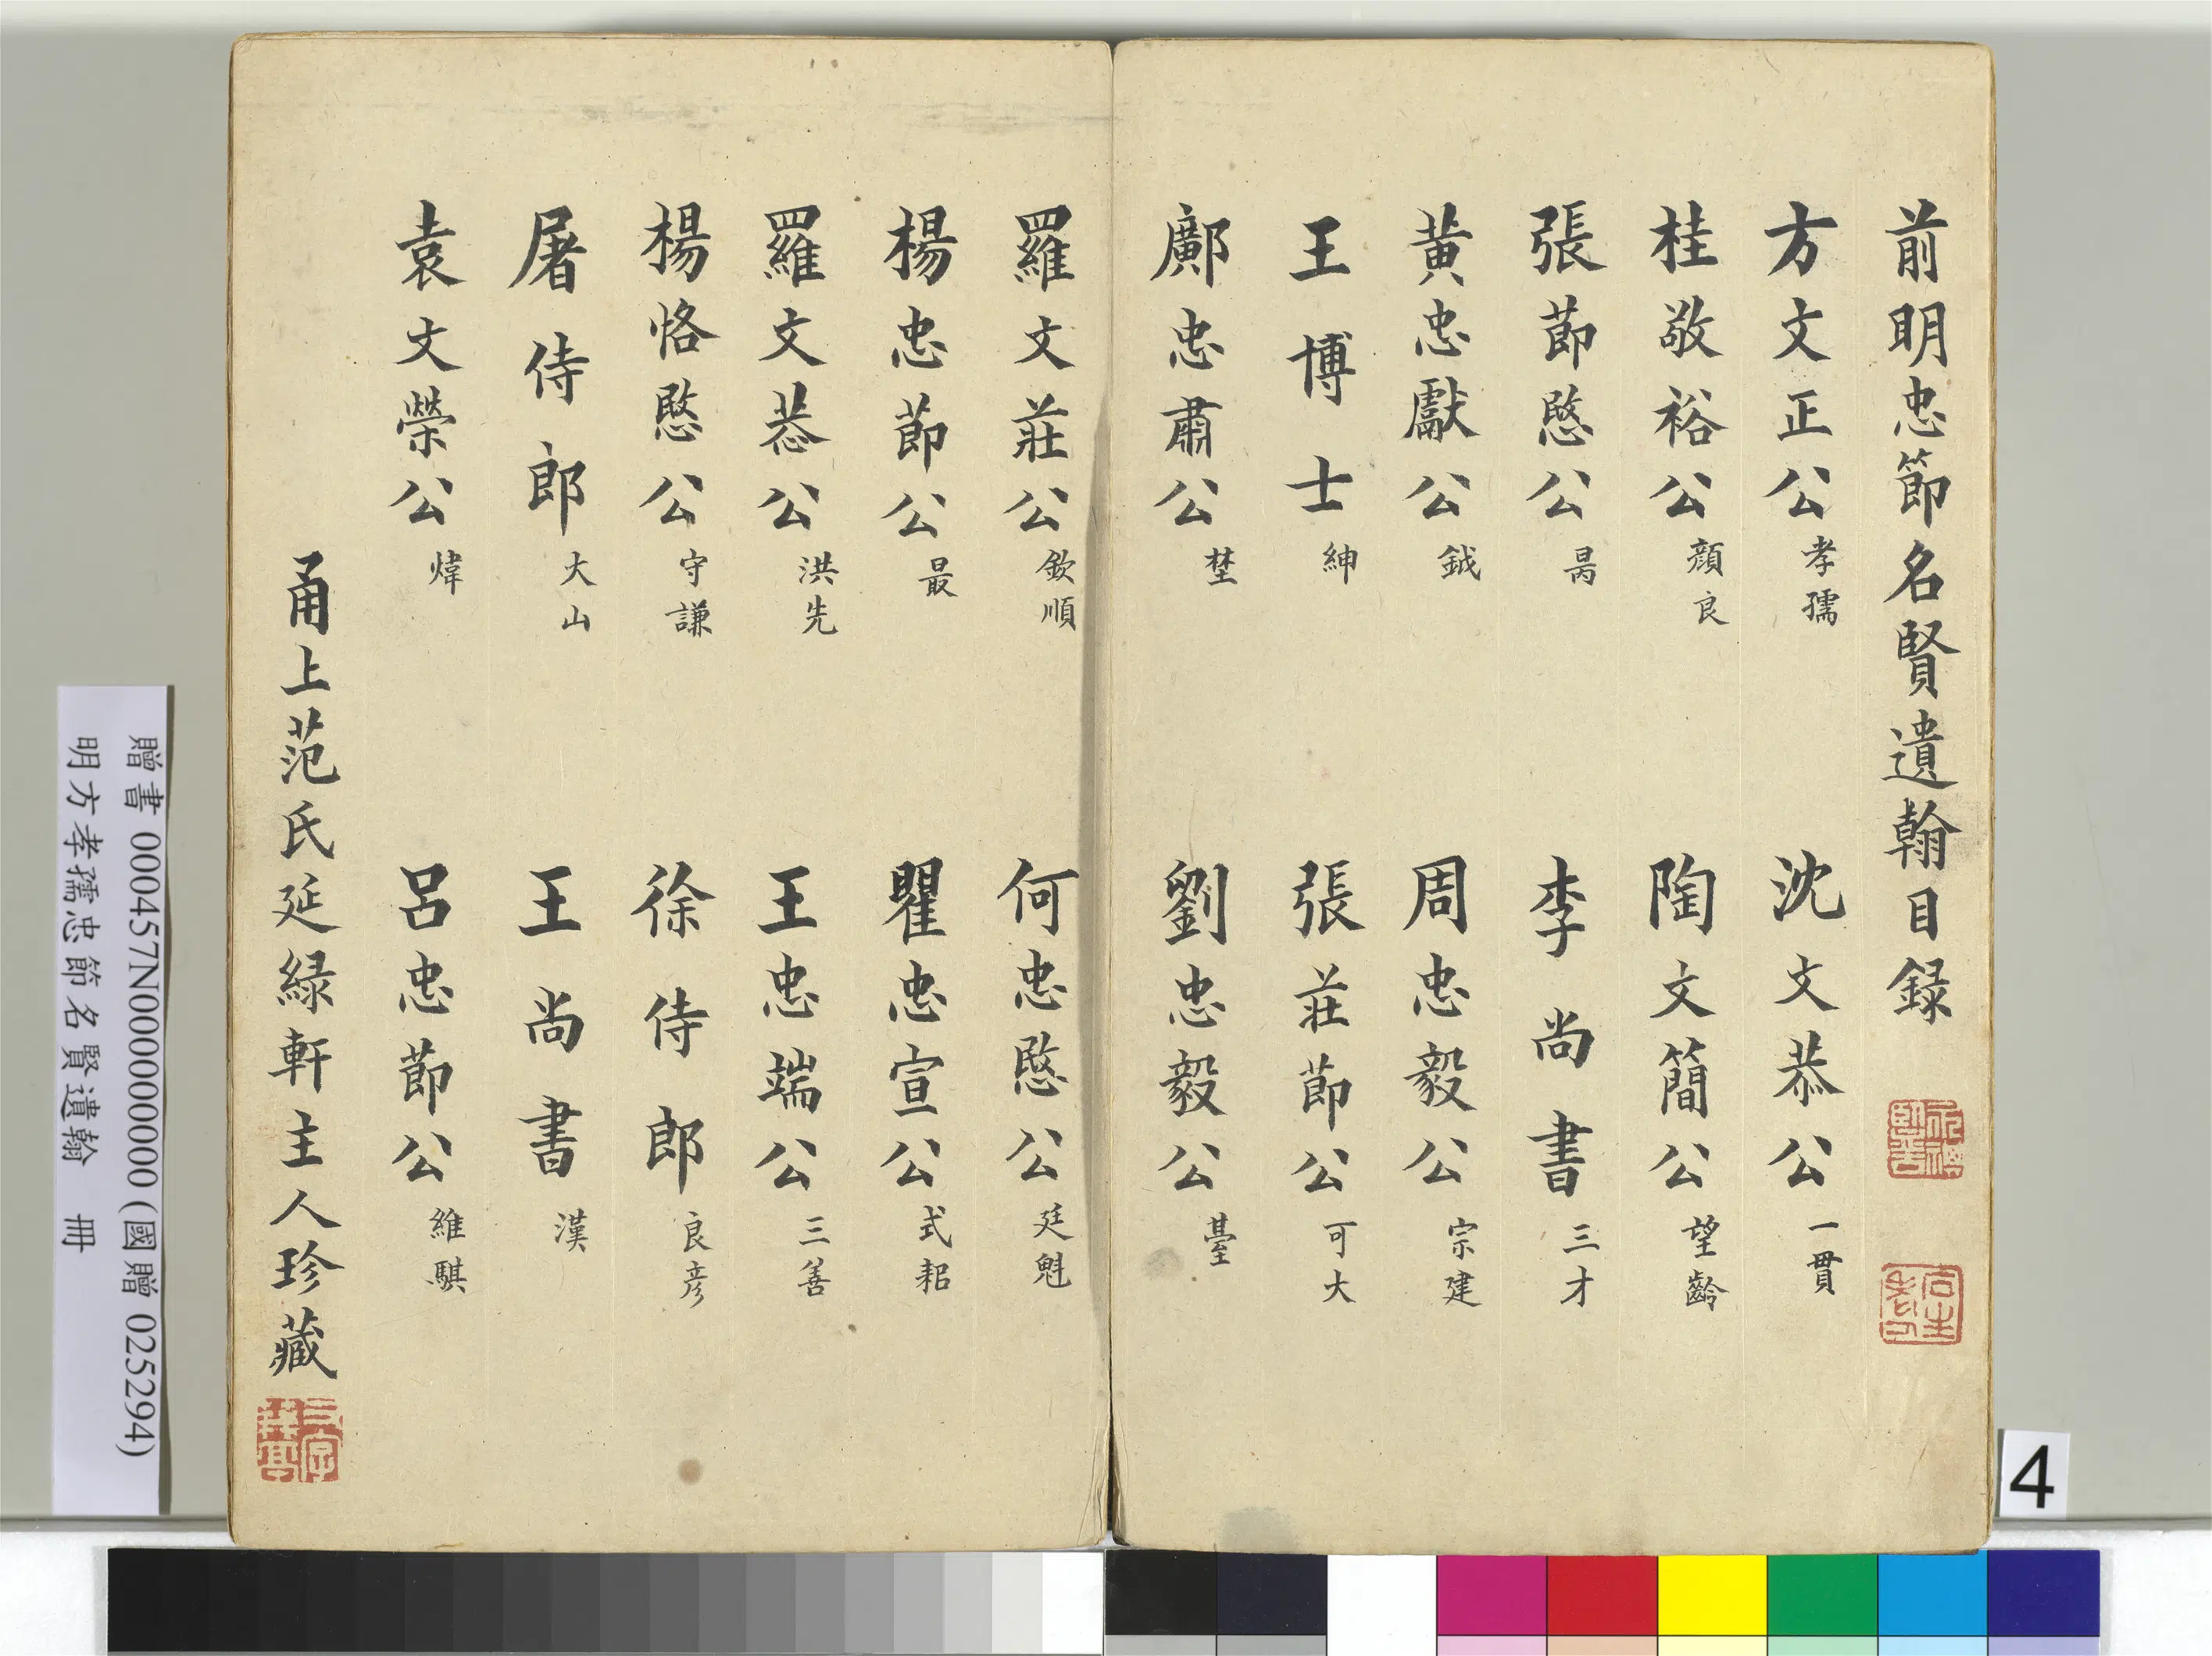 前明忠節名賢遺翰目録
方文正公 孝孺
沈文恭公 一貫
桂敬裕公 顔良
陶文簡公 望齡
張節愍公 昺
李尚書 三才
黃忠獻公 鉞
周忠毅公 宗建
王博士 紳
張莊節公 可大
鄺忠肅公 埜
劉忠毅公 臺
羅文莊公 欽順
何忠愍公 廷魁
楊忠節公 最
瞿忠宣公 式耜
羅文恭公 洪先
王忠端公 三善
楊恪愍公 守謙
徐侍郎 良彦
屠侍郎 大山
王尚書 漢
袁文榮公 煒
呂忠節公 維騏
甬上范氏延緑軒主人珍藏
贈書 000457N000000000 (國贈 0252294)
明方孝孺忠節名賢遺翰 冊
4